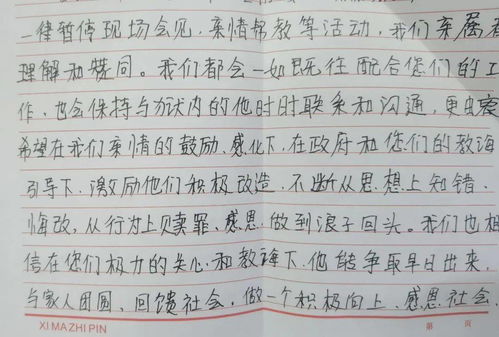 一律暂停现场会见，亲情帮教等活动，我们亲属者
理解和赞同。我们都会一如既往配合您们的工
作，也会保持与狱内的他时时联系和沟通，更由衷
希望在我们亲情的鼓励、感化下，在政府和您们的教诲
引导下，激励他们积极改造，不断从思想上知错、
悔改，从行为上赎罪、感恩，做到浪子回头。我们也相
信在您们极力的关心和教诲下，他能争取早日出来，
与家人团圆，回馈社会，做一个积极向上、感恩社会、
XIMAZHIPIN
第 页